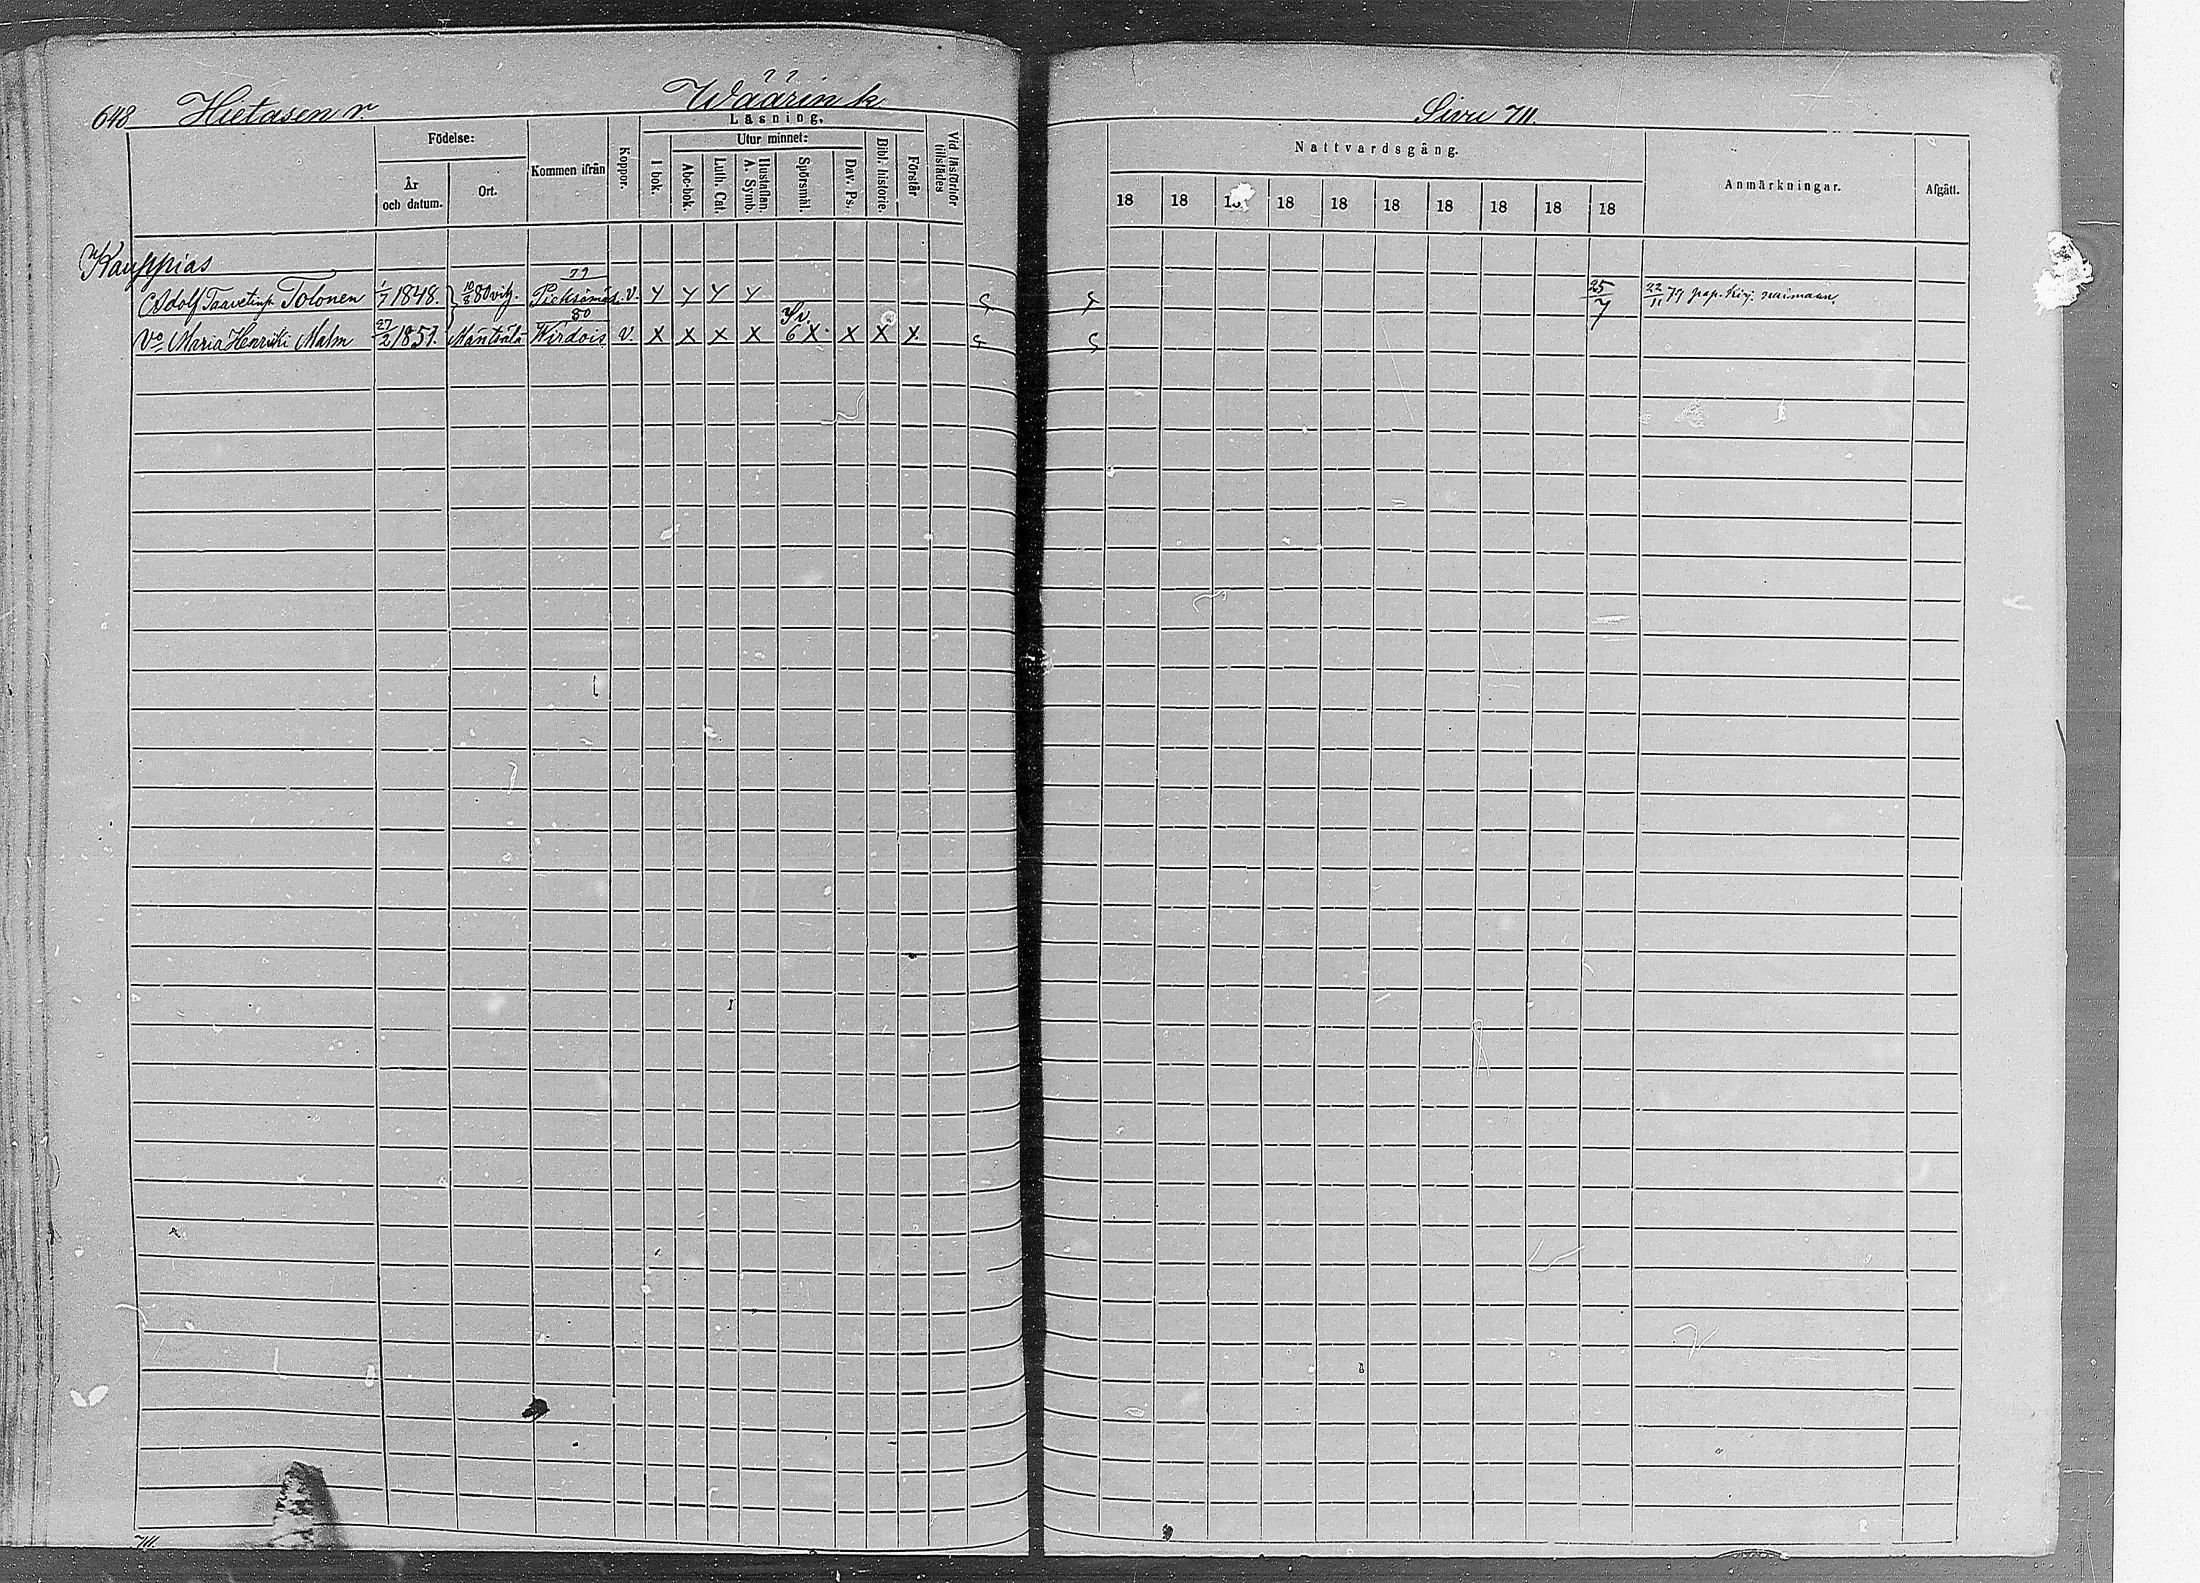 648 Hietasen r. Wäärin k. Sivu 711.
Läsning.
Födelse: Utur minnet: Nattvardsgång.
År och datum. Ort. Kommen ifrån Koppor. I bok. Abc-bok. Luth. Cat. Hustaflan. A. Symb. Spörsmål. Dav. Ps. Bibl. historie. Förstår Vid läsförhör tillstädes
18 18 18 18 18 18 18 18 18 18 Anmärkningar. Afgått.
Kauppias
79
Adolf Taavetinp. Tolonen 1/7 1848. 10/8 80 vih. Pieksämäs. v. 25/7 22/11 79 pap. kirj. naimaan.
80
Vo Maria Henriki Malm 27/2 1851. Mäntsälä Wirdois v. X X X X 6 X X X X
711.